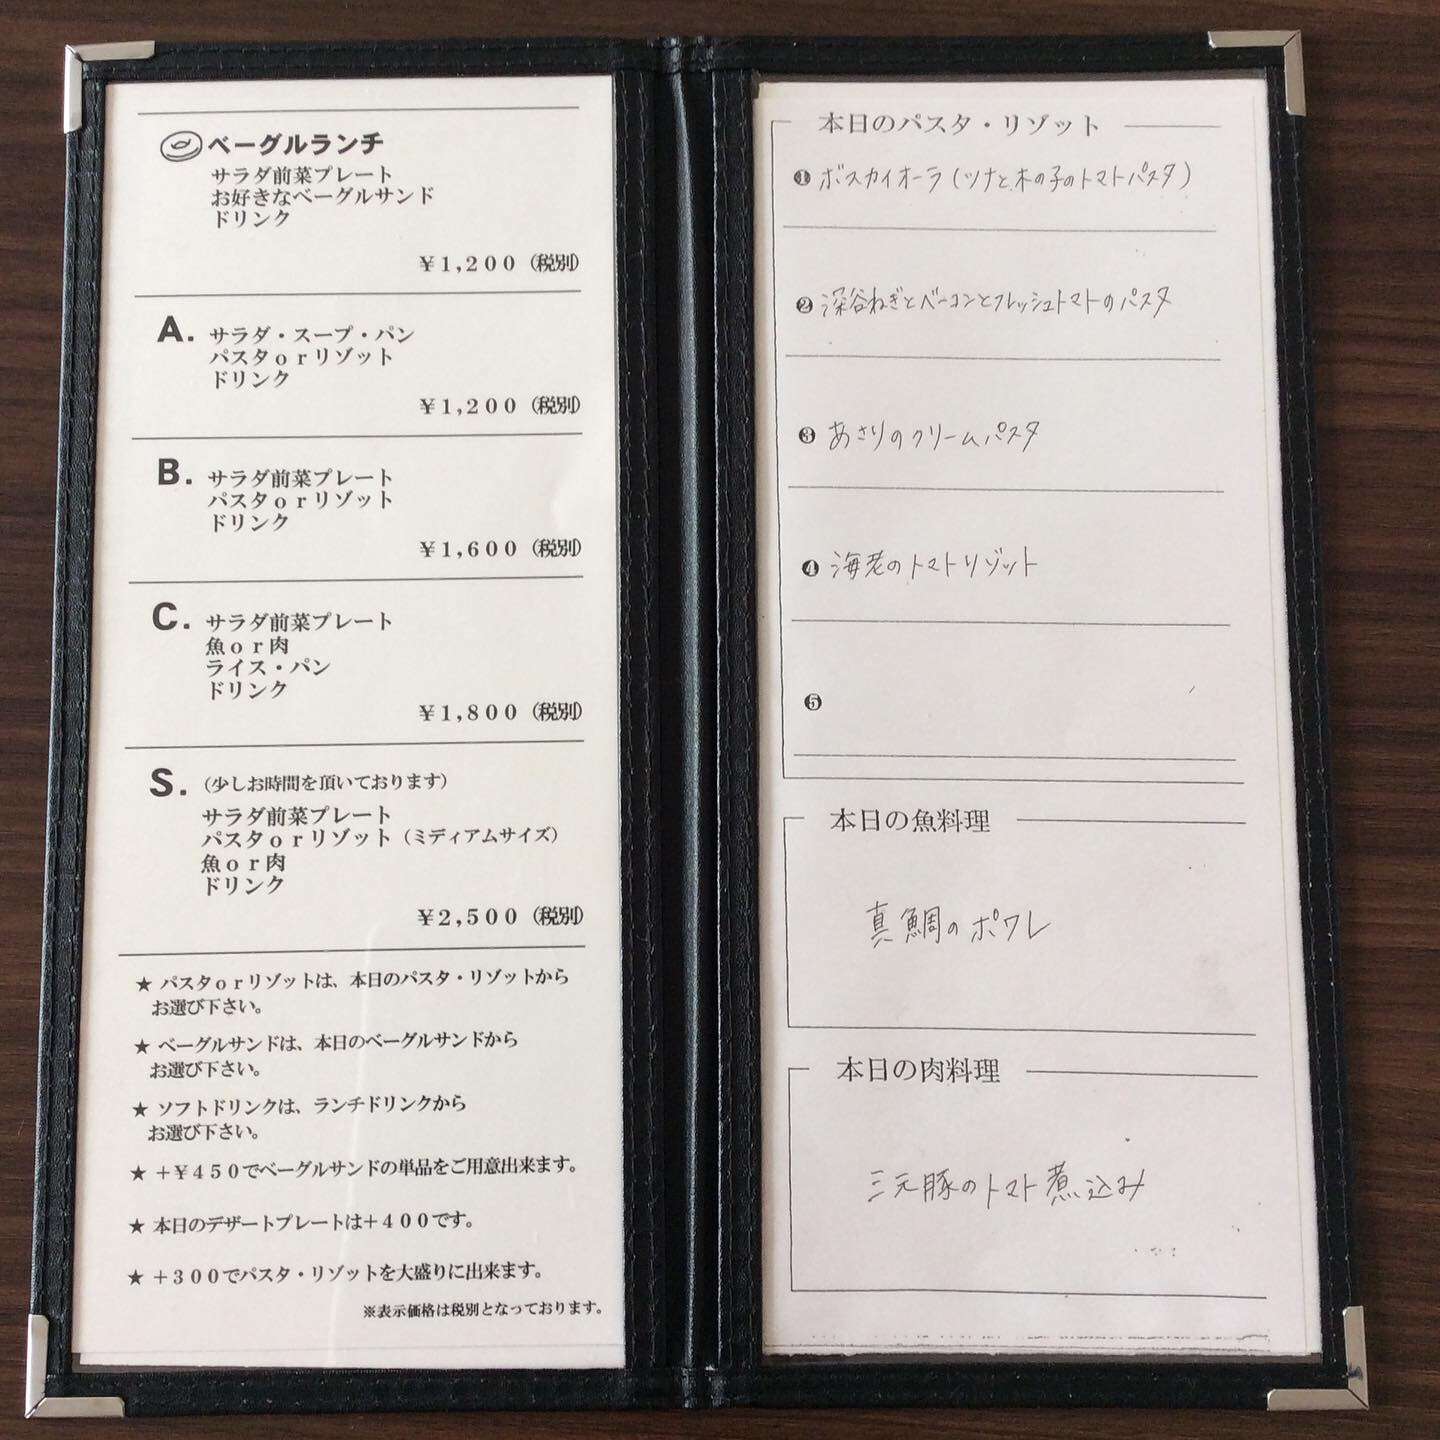 ベーグルランチ
サラダ前菜プレート
お好きなベーグルサンド
ドリンク
¥1,200（税別）
A. サラダ・スープ・パン
パスタorリゾット
ドリンク
¥1,200（税別）
B. サラダ前菜プレート
パスタorリゾット
ドリンク
¥1,600（税別）
C. サラダ前菜プレート
魚or肉
ライス・パン
ドリンク
¥1,800（税別）
S.（少しお時間を頂いております）
サラダ前菜プレート
パスタorリゾット（ミディアムサイズ）
魚or肉
ドリンク
¥2,500（税別）
★ パスタorリゾットは、本日のパスタ・リゾットから
お選び下さい。
★ ベーグルサンドは、本日のベーグルサンドから
お選び下さい。
★ ソフトドリンクは、ランチドリンクから
お選び下さい。
★ +¥450でベーグルサンドの単品をご用意出来ます。
★ 本日のデザートプレートは+400です。
★ +300でパスタ・リゾットを大盛りに出来ます。
※表示価格は税別となっております。
本日のパスタ・リゾット
❶ ボスカイオーラ（ツナと木の子のトマトパスタ）
❷ 深谷ねぎとベーコンとフレッシュトマトのパスタ
❸ あさりのクリームパスタ
❹ 海老のトマトリゾット
❺
本日の魚料理
真鯛のポワレ
本日の肉料理
三元豚のトマト煮込み